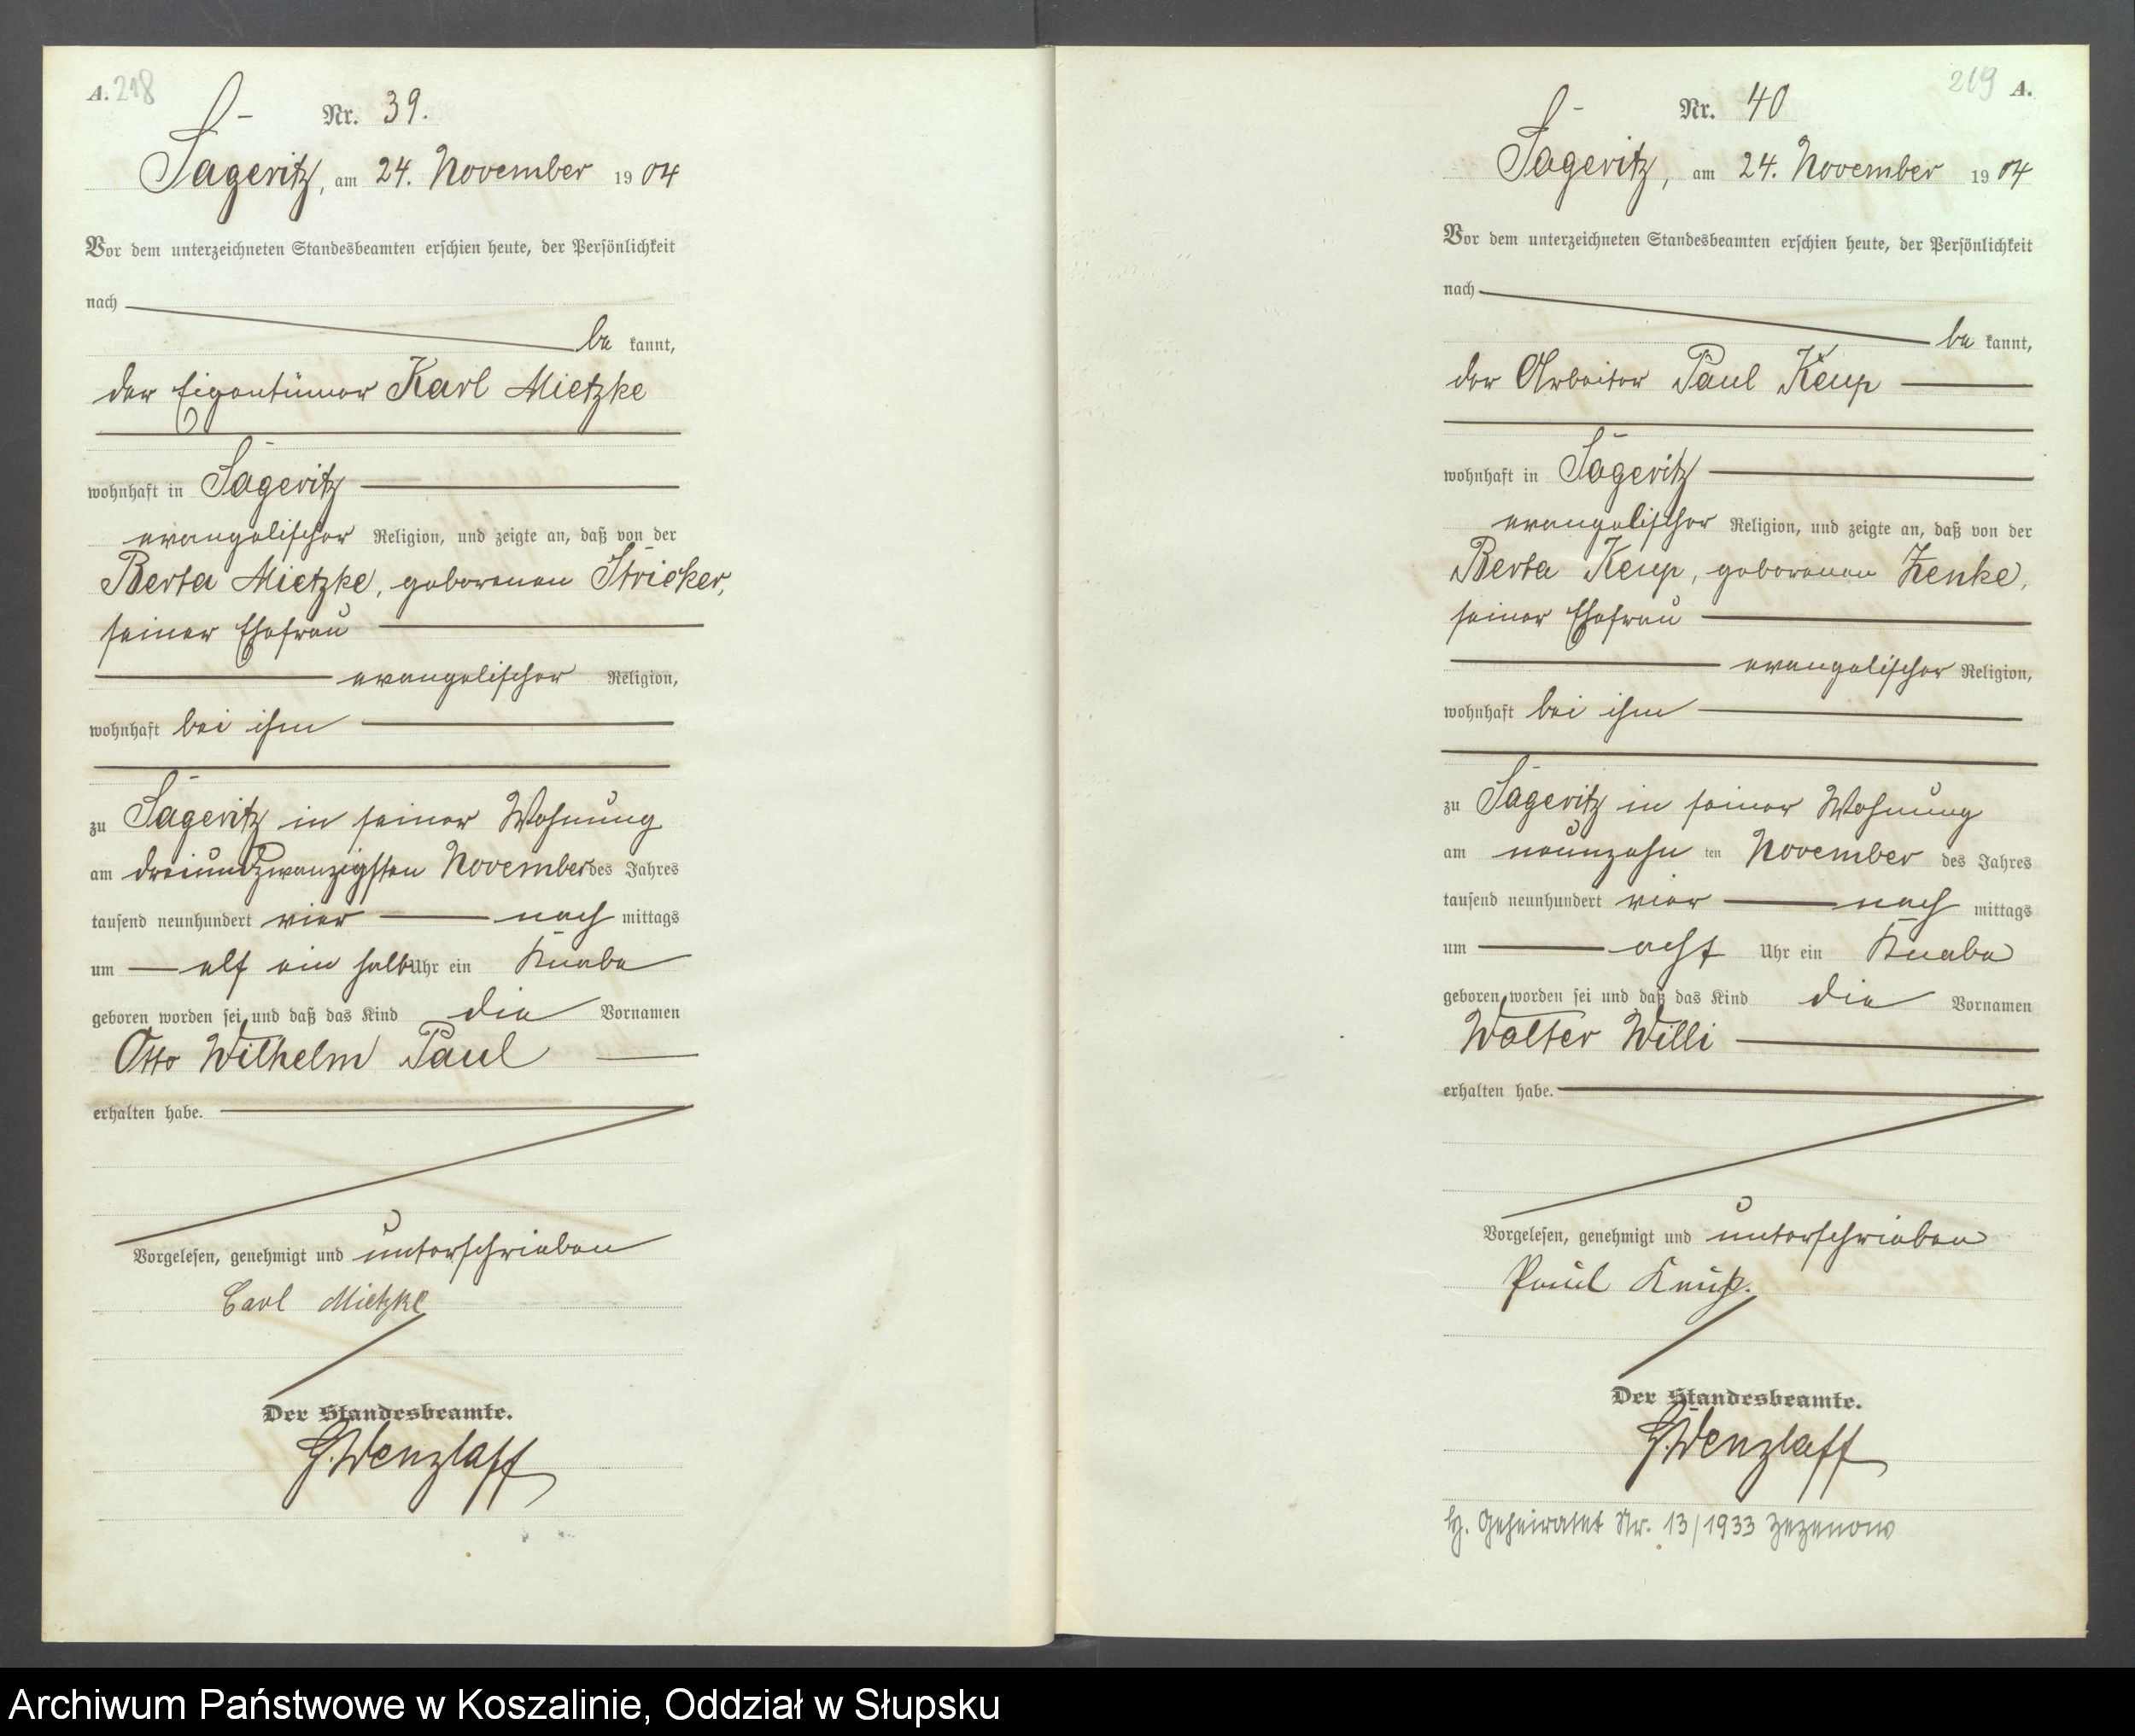 A. 218
Nr. 39.
Sageritz, am 24. November 1904
Vor dem unterzeichneten Standesbeamten erschien heute, der Persönlichkeit
nach
be kannt,
der Eigentümer Karl Mietzke
wohnhaft in Sageritz
evangelischer Religion, und zeigte an, daß von der
Berta Mietzke, geborenen Stricker,
seiner Ehefrau
evangelischer Religion,
wohnhaft bei ihm
zu Sageritz in seiner Wohnung
am dreiundzwanzigsten November des Jahres
tausend neunhundert vier nach mittags
um elf ein halb Uhr ein Knabe
geboren worden sei und daß das Kind die Vornamen
Otto Wilhelm Paul
erhalten habe.
Vorgelesen, genehmigt und unterschrieben
Carl Mietzke
Der Standesbeamte.
G. Wenzlaff
219 A.
Nr. 40
Sageritz, am 24. November 1904
Vor dem unterzeichneten Standesbeamten erschien heute, der Persönlichkeit
nach
be kannt,
der Arbeiter Paul Keup
wohnhaft in Sageritz
evangelischer Religion, und zeigte an, daß von der
Berta Keup, geborenen Zenke,
seiner Ehefrau
evangelischer Religion,
wohnhaft bei ihm
zu Sageritz in seiner Wohnung
am neunzehn ten November des Jahres
tausend neunhundert vier nach mittags
um acht Uhr ein Knabe
geboren worden sei und daß das Kind die Vornamen
Walter Willi
erhalten habe.
Vorgelesen, genehmigt und unterschrieben
Paul Keup.
Der Standesbeamte.
G. Wenzlaff
Geheiratet Nr. 13/1933 Zezenow
Archiwum Państwowe w Koszalinie, Oddział w Słupsku